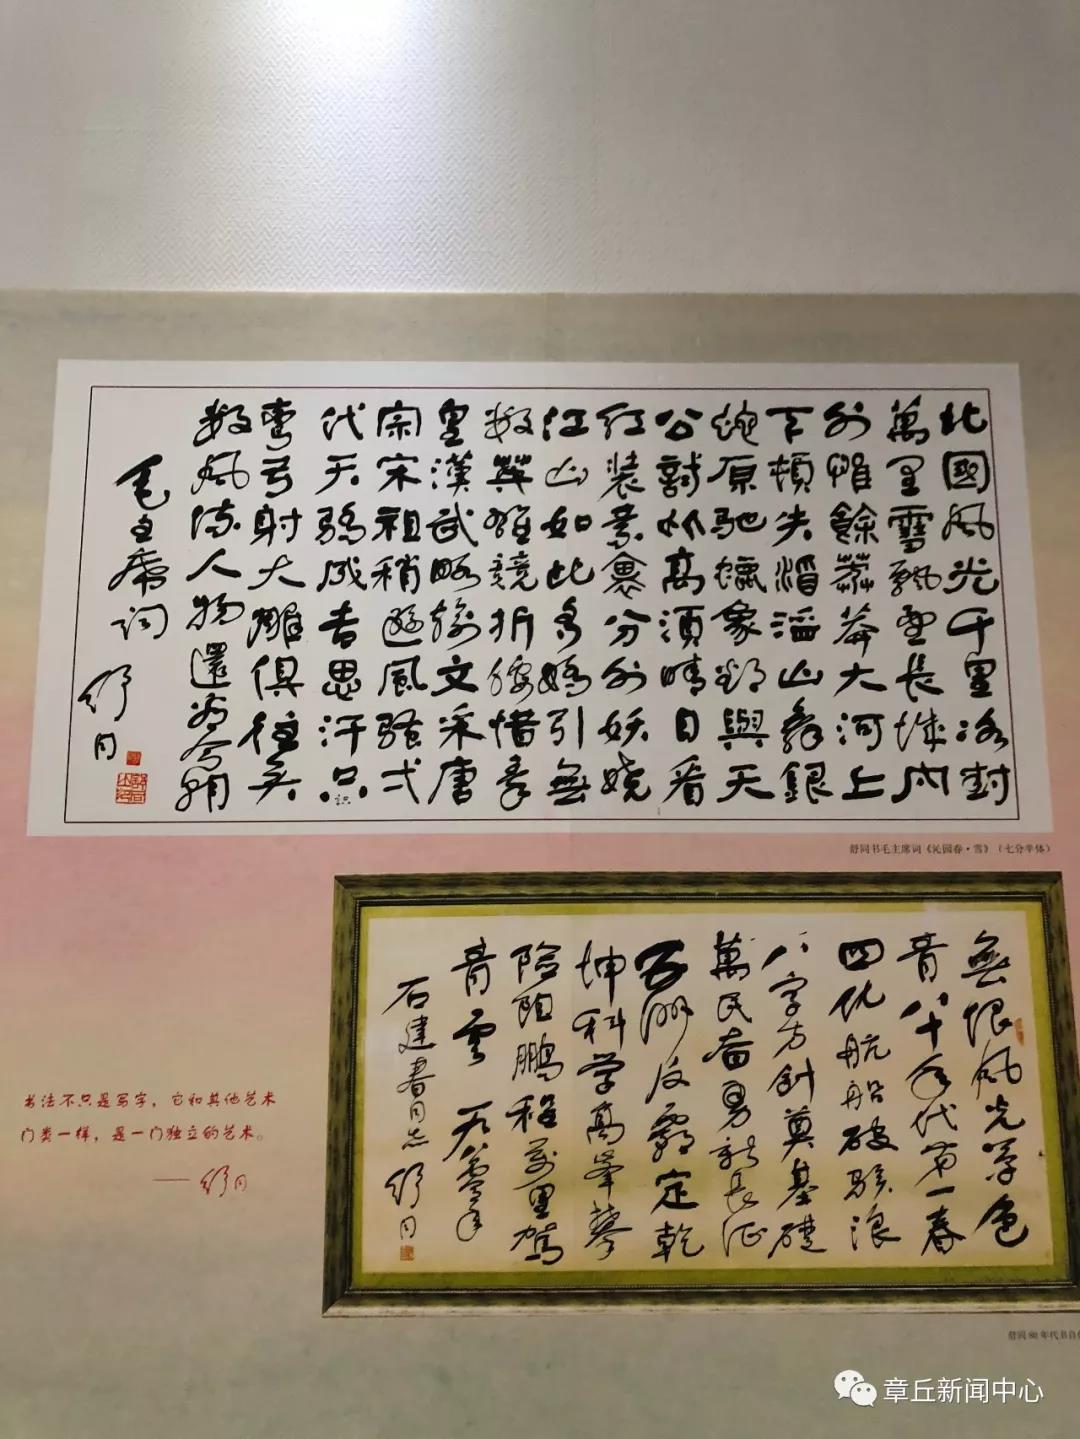 北國風光千里冰封
萬里雪飄望長城内
外惟餘莽莽大河上
下頓失滔滔山舞銀
蛇原馳蠟象欲與天
公試比高須晴日看
红装素裹分外妖娆
江山如此多嬌引無
数英雄競折腰惜秦
皇漢武略輸文采唐
宗宋祖稍遜風骚弌
代天骄成吉思汗只识
弯弓射大雕俱往矣
数風流人物還看今朝
毛主席词
舒同
舒同书毛主席词《沁园春·雪》（七分半体）
無限風光草色
青八十年代第一春
四化航船破骇浪
八字方針奠基礎
萬民奋勇新長征
五洲反霸定乾
坤科学高峯攀
险阻鹏程万里驾
青雲 一九八零年
石建春同志 舒同
书法不只是写字，它和其他艺术
门类一样，是一门独立的艺术。
——舒同
舒同80年代书自
章丘新闻中心